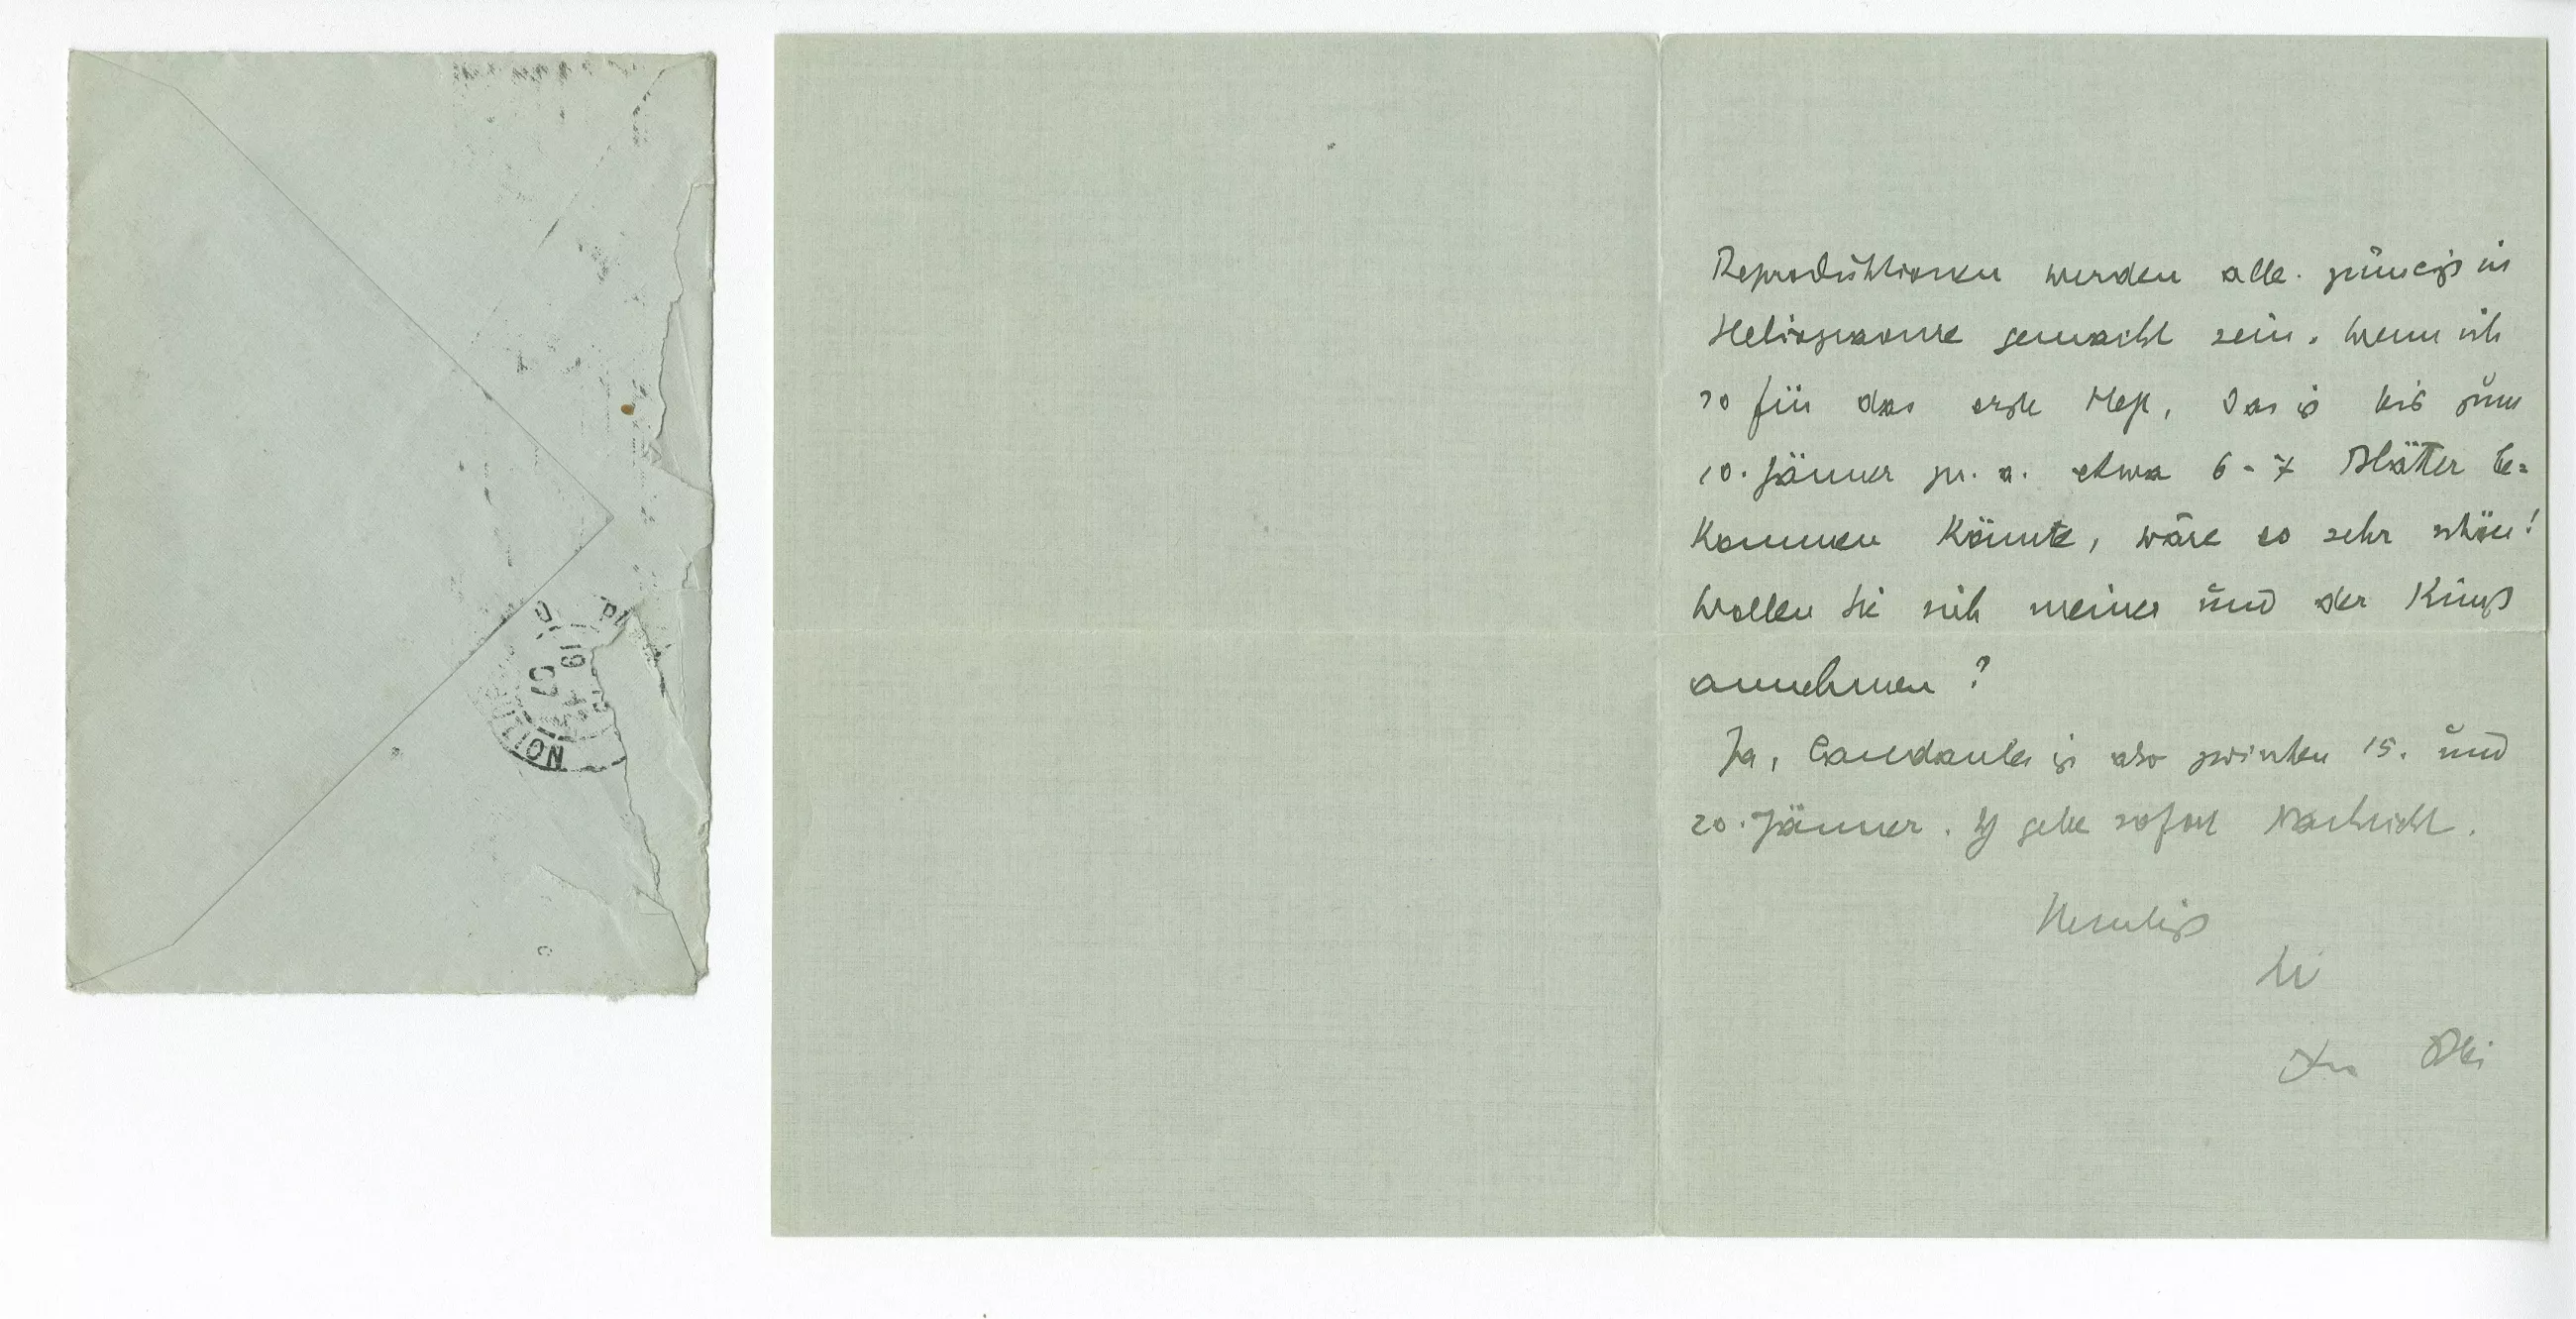 DISTRIBUTION
19
07
Reproduktionen werden alle. zumeist in
Heliogravure gemacht sein. Wenn ich
so für das erste Heft, das ist bis zum
10. Jänner pr. a. etwa 6-7 Blätter be-
kommen könnte, wäre es sehr schön!
Wollen Sie sich meiner und der Kunst
annehmen?
Ja, Candaules ist also zwischen 15. und
20. Jänner. Ich gebe sofort Nachricht.
Herzlichst
Ihr
Frz Blei